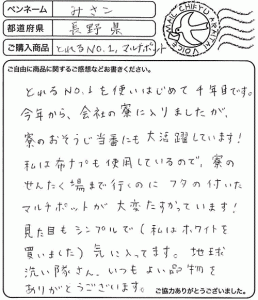 ペンネーム みさこ
都道府県 長野県
ご購入商品 とれるNO.1, マルチポット
ご自由に商品に関するご感想などお書きください。
とれるNO.1を使いはじめて4年目です。
今年から、会社の寮に入りましたが、
寮のおそうじ当番にも大活躍しています!
私は布ナプも使用しているので、寮の
せんたく場まで行くのにフタの付いた
マルチポットが大変たすかっています!
見た目もシンプルで(私はホワイトを
買いました)気に入ってます。地球
洗い隊さん、いつもよい品物を
ありがとうございます。
ご協力ありがとうございました。